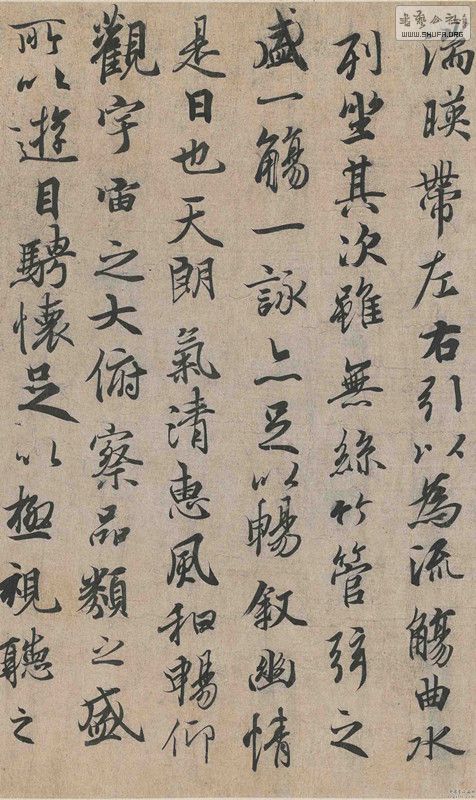 湍暎帶左右引以為流觴曲水
列坐其次雖無絲竹管弦之
盛一觴一詠亦足以暢敘幽情
是日也天朗氣清惠風和暢仰
觀宇宙之大俯察品類之盛
所以遊目騁懷足以極視聽之
WWW.SHUFA.ORG